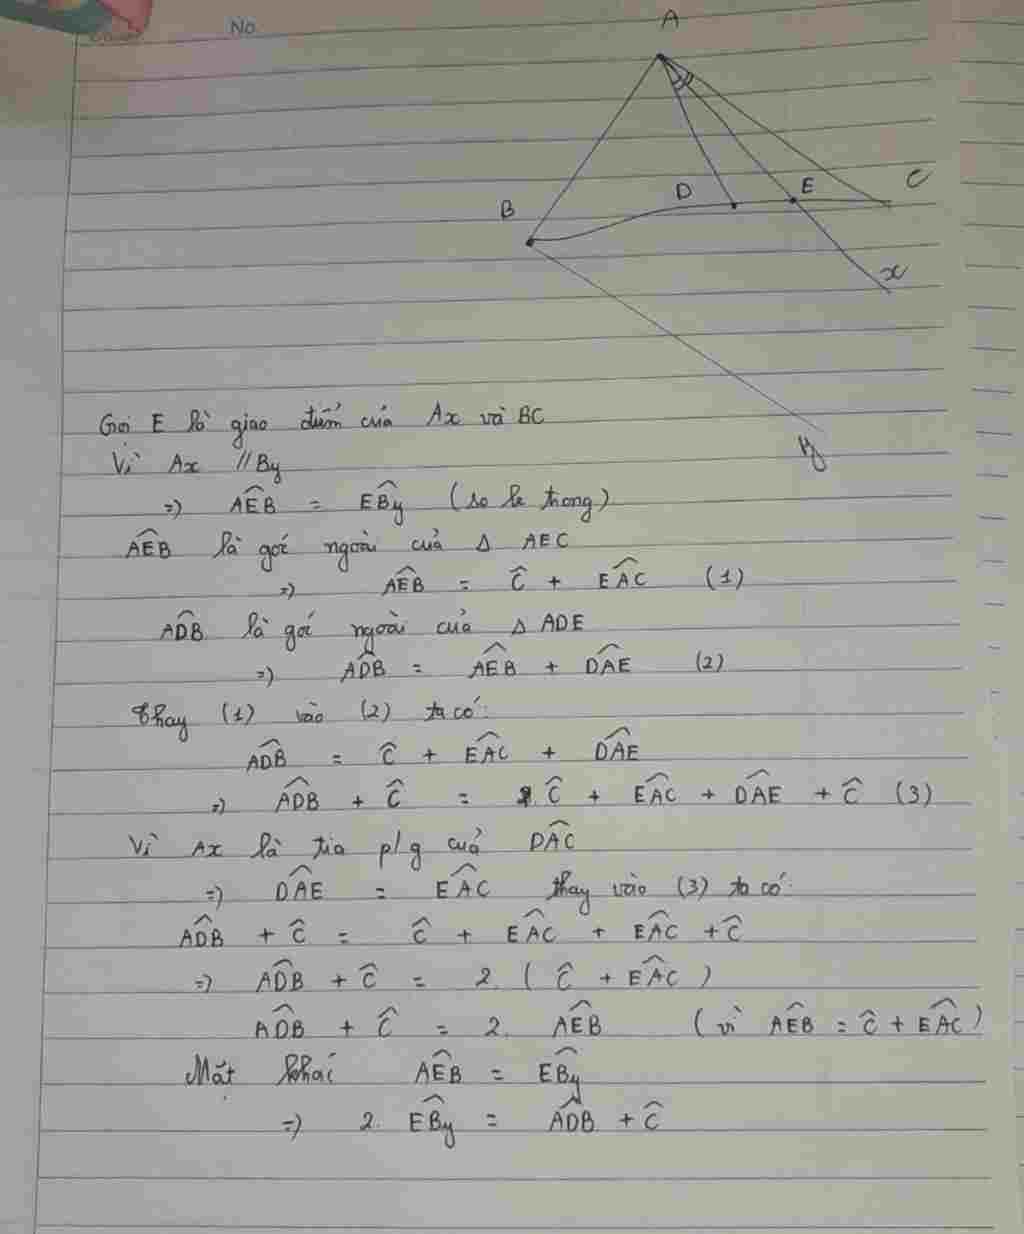 No
A
B
D
E
C
x
y
Gọi E là giao điểm của Ax và BC
Vì Ax // By
=) \widehat{AEB} = \widehat{EBy} (so le trong)
\widehat{AEB} là góc ngoài của Δ AEC
=) \widehat{AEB} = \widehat{C} + \widehat{EAC} (1)
\widehat{ADB} là góc ngoài của Δ ADE
=) \widehat{ADB} = \widehat{AEB} + \widehat{DAE} (2)
Thay (1) vào (2) ta có:
\widehat{ADB} = \widehat{C} + \widehat{EAC} + \widehat{DAE}
=) \widehat{ADB} + \widehat{C} = \widehat{C} + \widehat{EAC} + \widehat{DAE} + \widehat{C} (3)
Vì Ax là tia p/g của \widehat{DAC}
=) \widehat{DAE} = \widehat{EAC} thay vào (3) ta có:
\widehat{ADB} + \widehat{C} = \widehat{C} + \widehat{EAC} + \widehat{EAC} + \widehat{C}
=) \widehat{ADB} + \widehat{C} = 2. ( \widehat{C} + \widehat{EAC} )
\widehat{ADB} + \widehat{C} = 2. \widehat{AEB} (vì \widehat{AEB} = \widehat{C} + \widehat{EAC} )
Mặt khác \widehat{AEB} = \widehat{EBy}
=) 2. \widehat{EBy} = \widehat{ADB} + \widehat{C}